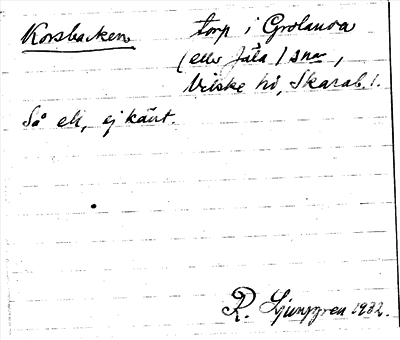 Korsbacken torp i Grolanda
(eller Jäla) snr,
Vilske hd, Skarab. l.
Så ell, ej känt.
R. Ljunggren 1932.